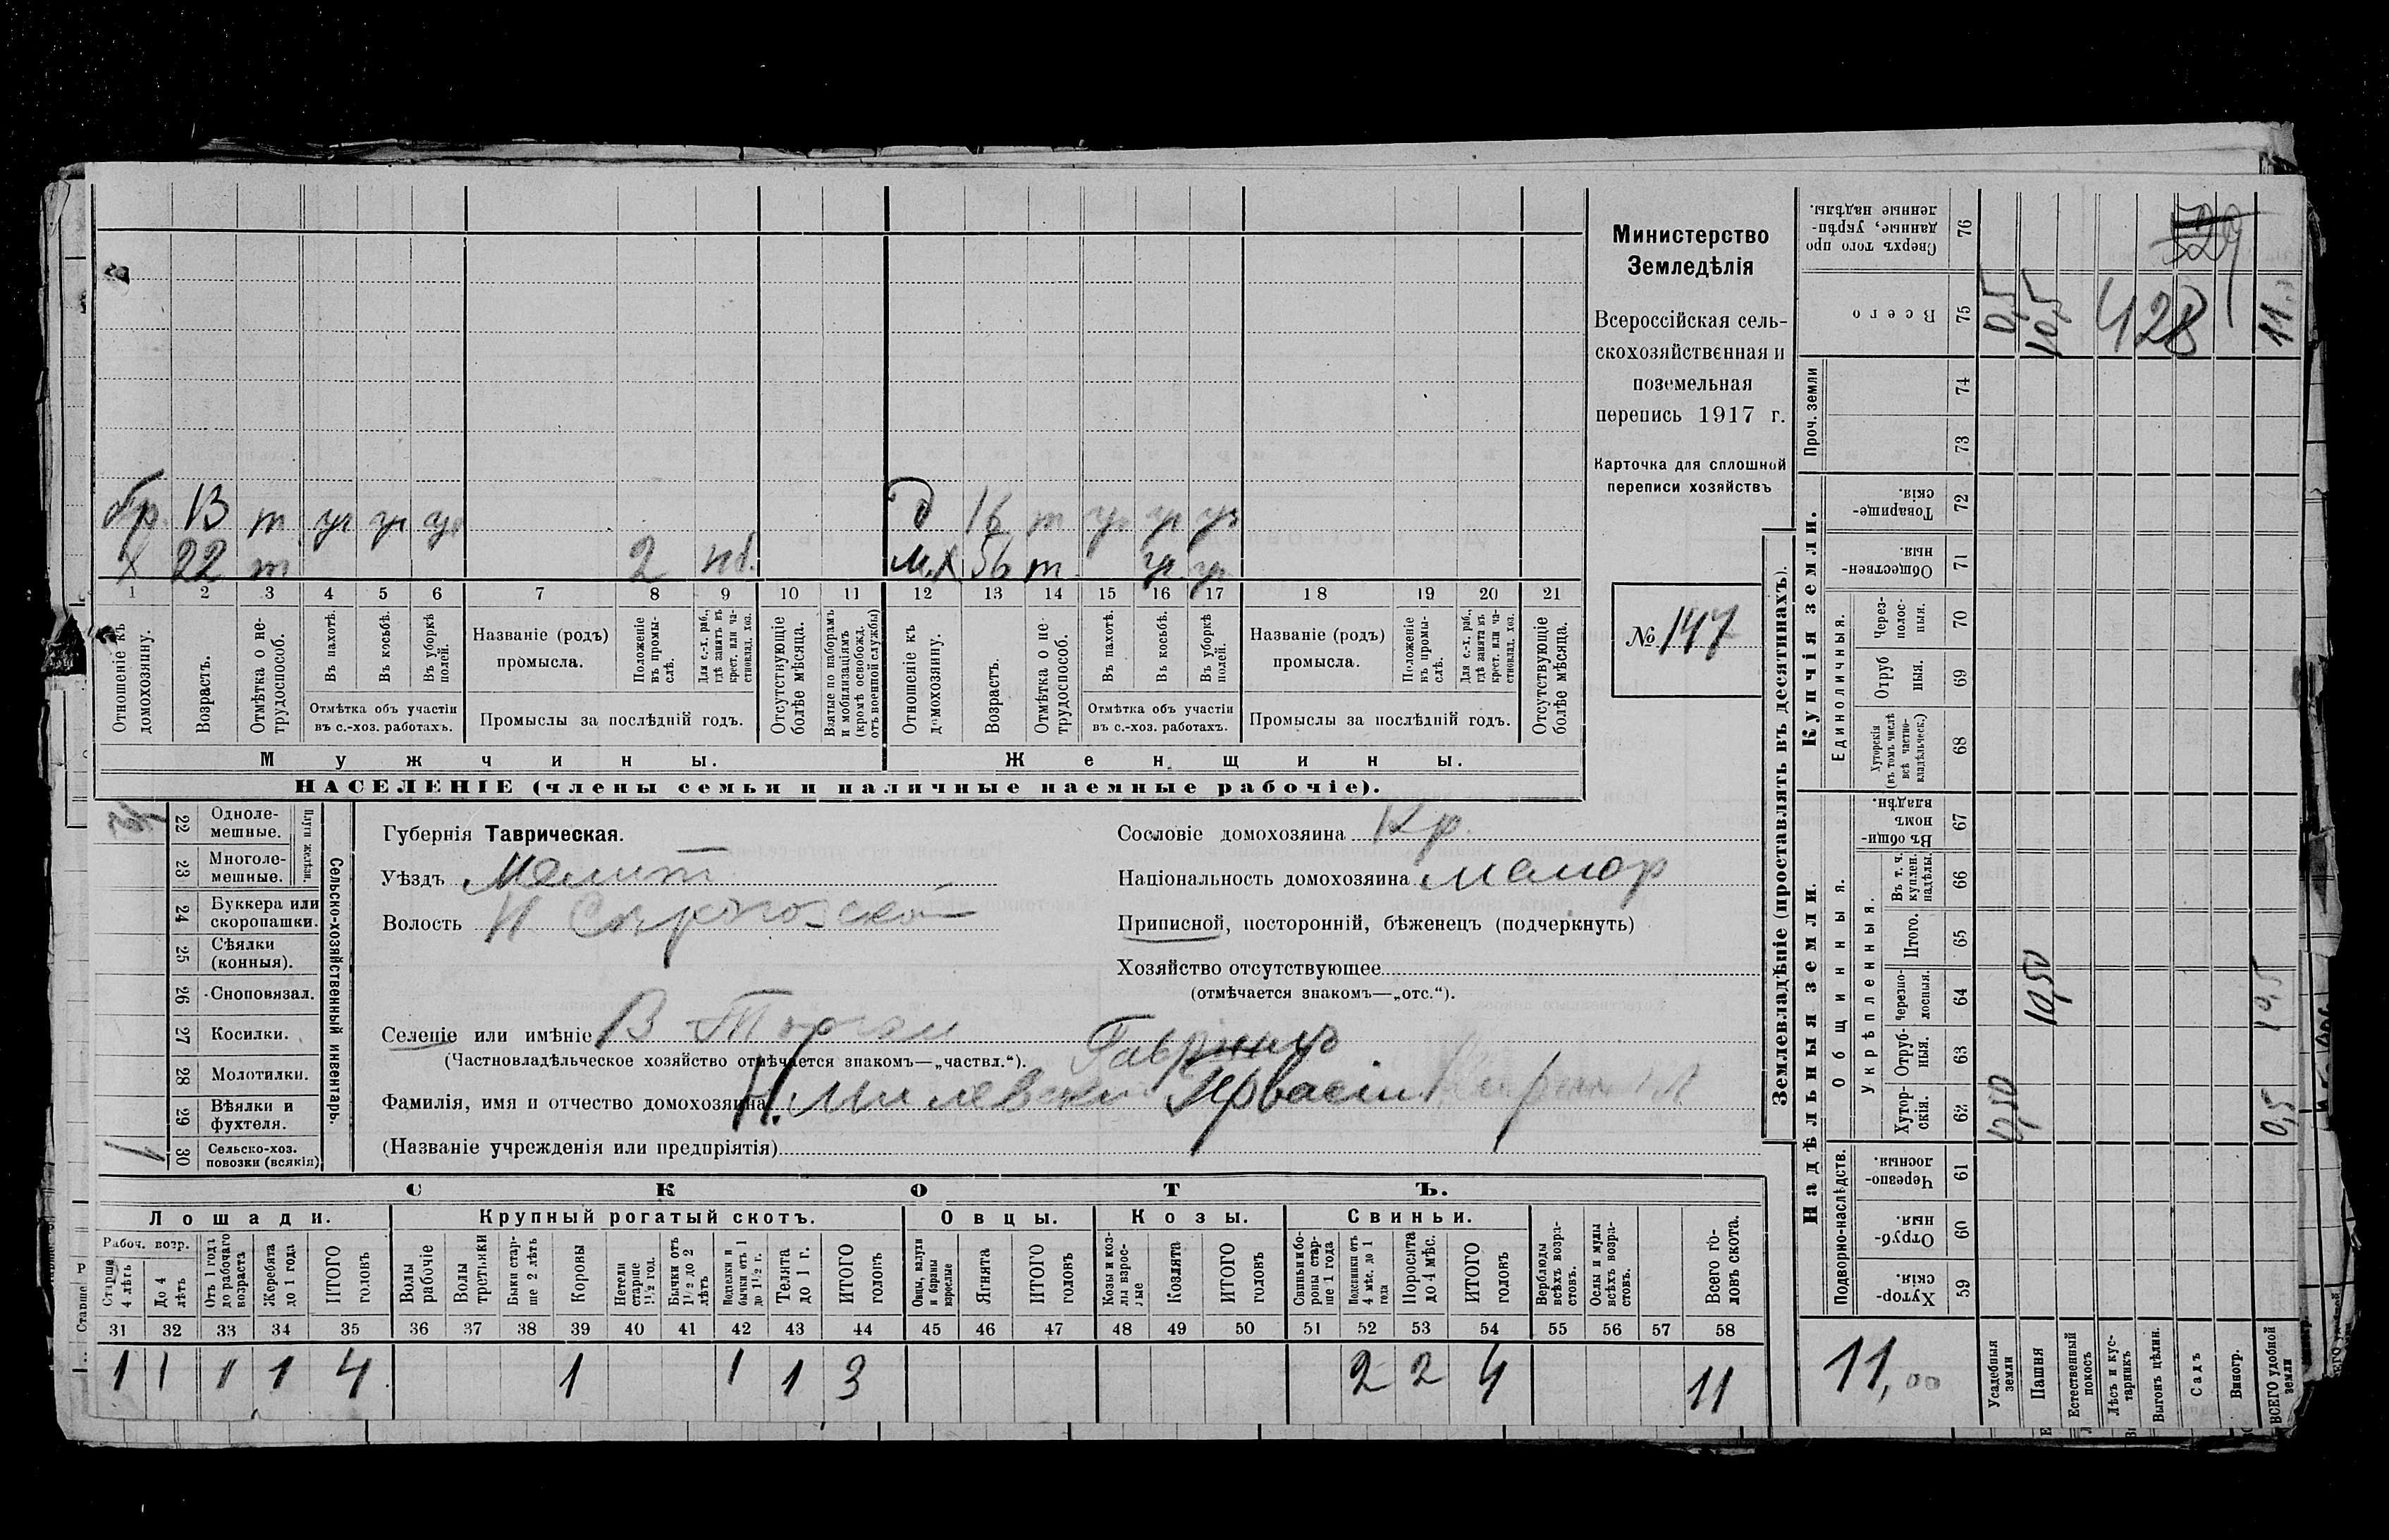 бр. 13 т уч уч уч
Х 22 т 2 нб.
д 16 т уч уч уч
м.Х 56 т уч уч
1 2 3 4 5 6 7 8 9 10 11 12 13 14 15 16 17 18 19 20 21
Отношеніе къ домохозяину.
Возрастъ.
Отмѣтка о не-трудоспособ.
Въ пахотѣ.
Въ косьбѣ.
Въ уборкѣ полей.
Отмѣтка объ участіи въ с.-хоз. работахъ.
Названіе (родъ) промысла.
Положеніе въ промы-слѣ.
Для с.-х. раб., гдѣ занятъ въ крест. или ча-стновлад. хоз.
Промыслы за послѣдній годъ.
Отсутствующіе болѣе мѣсяца.
Взятые по наборамъ и мобилизаціямъ (кромѣ освобожд. отъ военной службы)
Отношеніе къ домохозяину.
Возрастъ.
Отмѣтка о не трудоспособ.
Въ пахотѣ.
Въ косьбѣ.
Въ уборкѣ полей.
Отмѣтка объ участіи въ с.-хоз. работахъ.
Названіе (родъ) промысла.
Положеніе въ промы-слѣ.
Для с.-х. раб., гдѣ занята въ крест. или ча-стновлад. хоз.
Промыслы за послѣдній годъ.
Отсутствующіе болѣе мѣсяца.
Мужчины.
Женщины.
НАСЕЛЕНІЕ (члены семьи и наличные наемные рабочіе).
Министерство
Земледѣлія
Всероссійская сель-
скохозяйственная и
поземельная
перепись 1917 г.
Карточка для сплошной
переписи хозяйствъ
№ 147
22 Одноле-мешные.
23 Многоле-мешные.
Плуги желѣзн.
24 Буккера или скоропашки.
25 Сѣялки (конныя).
26 Сноповязал.
27 Косилки.
28 Молотилки.
29 Вѣялки и фухтеля.
1 30 Сельско-хоз. повозки (всякія)
Сельско-хозяйственный инвентарь.
Губернія Таврическая.
Уѣздъ Мелит
Волость Н Сѣрогозской
Селеніе или имѣніе В Торгаи
(Частновладѣльческое хозяйство отмѣчается знакомъ—„частвл.“).
Фамилія, имя и отчество домохозяина
(Названіе учрежденія или предпріятія)
Сословіе домохозяина Кр.
Національность домохозяина малор
Приписной, посторонній, бѣженецъ (подчеркнуть)
Хозяйство отсутствующее
(отмѣчается знакомъ—„отс.“).
СКОТЪ.
Лошади.
Крупный рогатый скотъ.
Овцы.
Козы.
Свиньи.
Рабоч. возр.
Старше 4 лѣтъ
До 4 лѣтъ
Отъ 1 года до рабочаго возраста
Жеребята до 1 года
ИТОГО головъ
Волы рабочіе
Волы третьяки
Быки стар-ше 2 лѣтъ
Коровы
Нетели старше 1½ год.
Бычки отъ 1½ до 2 лѣтъ
Подтелки и бычки отъ 1 до 1½ г.
Телята до 1 г.
ИТОГО головъ
Овцы, валухи и бараны взрослые
Ягнята
ИТОГО головъ
Козы и коз-лы взрос-лые
Козлята
ИТОГО головъ
Свиньи и бо-ровы стар-ше 1 года
Подсвинки отъ 4 мѣс. до 1 года
Поросята до 4 мѣс.
ИТОГО головъ
Верблюды всѣхъ возра-стовъ.
Ослы и мулы всѣхъ возра-стовъ.
Всего го-ловъ скота.
31 32 33 34 35 36 37 38 39 40 41 42 43 44 45 46 47 48 49 50 51 52 53 54 55 56 57 58
1 1 1 1 4 1 1 1 3 2 2 4 11
Землевладѣніе (проставлять въ десятинахъ).
Надѣльныя земли.
Купчія земли.
Проч. земли
Подворно-наслѣдств.
Общинныя.
Укрѣпленныя.
Единоличныя.
Хутор-скія. 59
Отруб-ныя. 60
Черезпо-лосныя. 61
Хутор-скія. 62
Отруб-ныя. 63
Черезпо-лосныя. 64
Итого. 65
Въ т. ч. куплен. надѣлы. 66
Въ общи-номъ владѣн. 67
Хуторскія (въ томъ числѣ всѣ частно-владѣльческ.) 68
Отруб ныя. 69
Через-полос-ныя. 70
Обществен-ныя. 71
Товарище-скія. 72
73
74
Всего 75
Сверхъ того про данные, укрѣп-ленные надѣлы. 76
11,00
Усадебныя земли 0,50 0,5
Пашня 10,50 10,5
Естественный покосъ
Лѣсъ и кус-тарникъ
Выгонъ цѣлин.
Садъ
Виногр.
ВСЕГО удобной земли 0,5 10,5 11
428